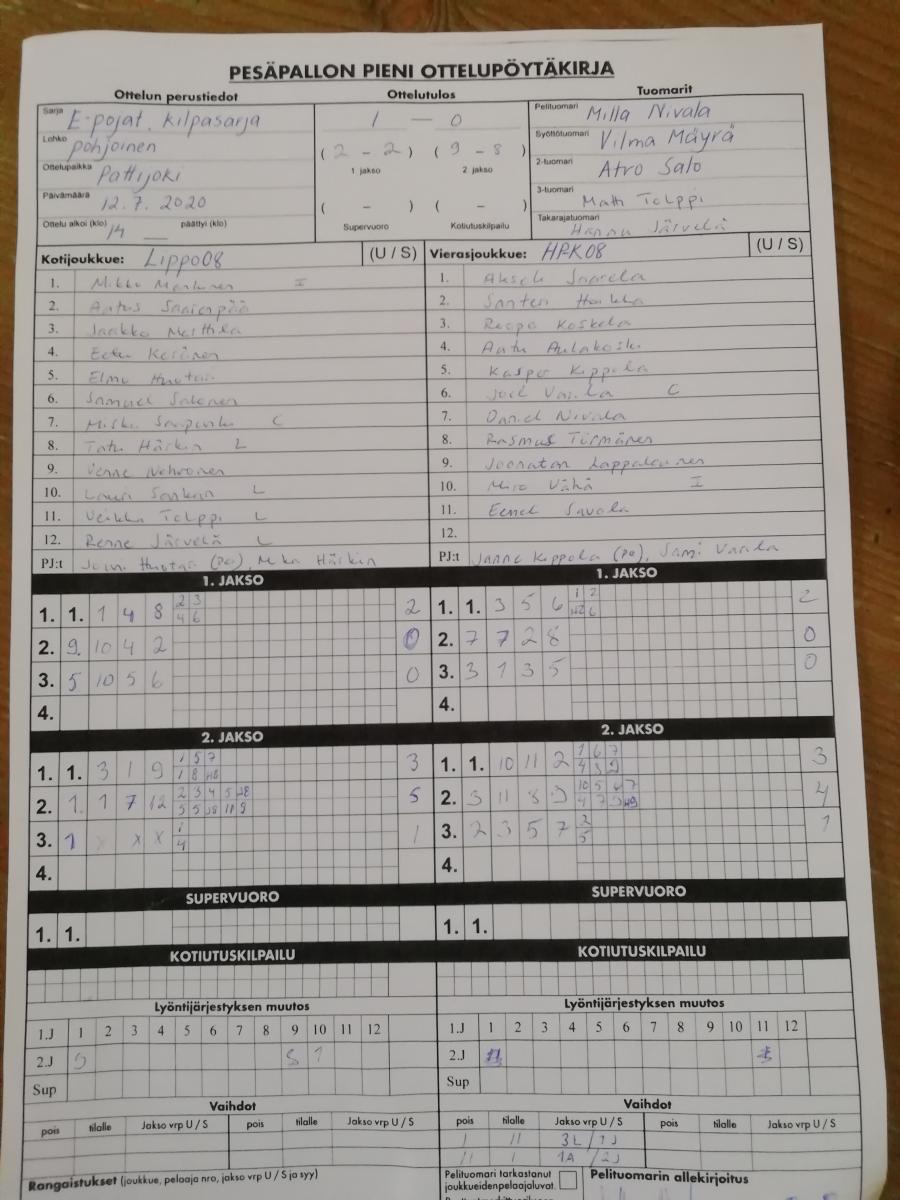 PESÄPALLON PIENI OTTELUPÖYTÄKIRJA
Ottelun perustiedot Ottelutulos Tuomarit
Sarja E-pojat, kilpasarja
Lohko pohjoinen
Ottelupaikka Pattijoki
Päivämäärä 12.7.2020
Ottelu alkoi (klo) 14 päättyi (klo)
1 — 0
( 2 - 2 ) ( 9 - 8 )
1 jakso 2. jakso
( - ) ( - )
Supervuoro Kotiutuskilpailu
Pelituomari Milla Nivala
Syöttötuomari Vilma Mäyrä
2-tuomari Atro Salo
3-tuomari Matti Tolppi
Takarajatuomari Hannu Järvelä
Kotijoukkue: Lippo08 (U / S)
1. Mikko I
2. Aatos Saarenpää
3. Jaakko Marttila
4. Eetu Kesänen
5. Elmo Huotari
6. Samuel Salonen
7. C
8. Tatu Härkin L
9. Venne
10. Lauri L
11. Veikka Tolppi L
12. Renne Järvelä L
PJ:t Jouni Huotari (PJ), Mika Härkin
Vierasjoukkue: HPK08 (U / S)
1. Akseli Saarela
2. Santeri
3. Roope Koskela
4. Aatu Aulakoski
5. Kasper Koppola
6. Joel Varila C
7. Daniel Nivala
8. Rasmus Törmänen
9. Joonatan Lappalainen
10. Miro Vähä I
11. Eemel Savola
12.
PJ:t Janne Koppola (PJ), Sami Varila
1. JAKSO
1. 1. 1 4 8 2 3 2
4 6
2. 9. 10 4 2 0
3. 5 10 5 6 0
4.
2. JAKSO
1. 1. 3 1 9 1 5 7 3
1 8
2. 1. 1 7 12 2 3 4 5 5
3. 1 x x x 1 1
4
4.
SUPERVUORO
1. 1.
KOTIUTUSKILPAILU
Lyöntijärjestyksen muutos
1.J 1 2 3 4 5 6 7 8 9 10 11 12
2.J 9 1
Sup
Vaihdot
pois tilalle Jakso vrp U / S pois tilalle Jakso vrp U / S
1. JAKSO
1. 1. 3 5 6 1 2 2
2. 7 7 2 8 0
3. 3 1 3 5 0
4.
2. JAKSO
1. 1. 10 11 2 1 6 7 3
4 5 9
2. 3 11 8 9 10 5 6 7 4
3. 2 3 5 7 2 1
5
4.
SUPERVUORO
1. 1.
KOTIUTUSKILPAILU
Lyöntijärjestyksen muutos
1.J 1 2 3 4 5 6 7 8 9 10 11 12
2.J
Sup
Vaihdot
pois tilalle Jakso vrp U / S pois tilalle Jakso vrp U / S
1 11 3L / 1J
11 1 1A / 2J
Rangaistukset (joukkue, pelaaja nro, jakso vrp U / S ja syy)
Pelituomari tarkastanut
joukkueidenpelaajaluvat.
Pelituomarin allekirjoitus